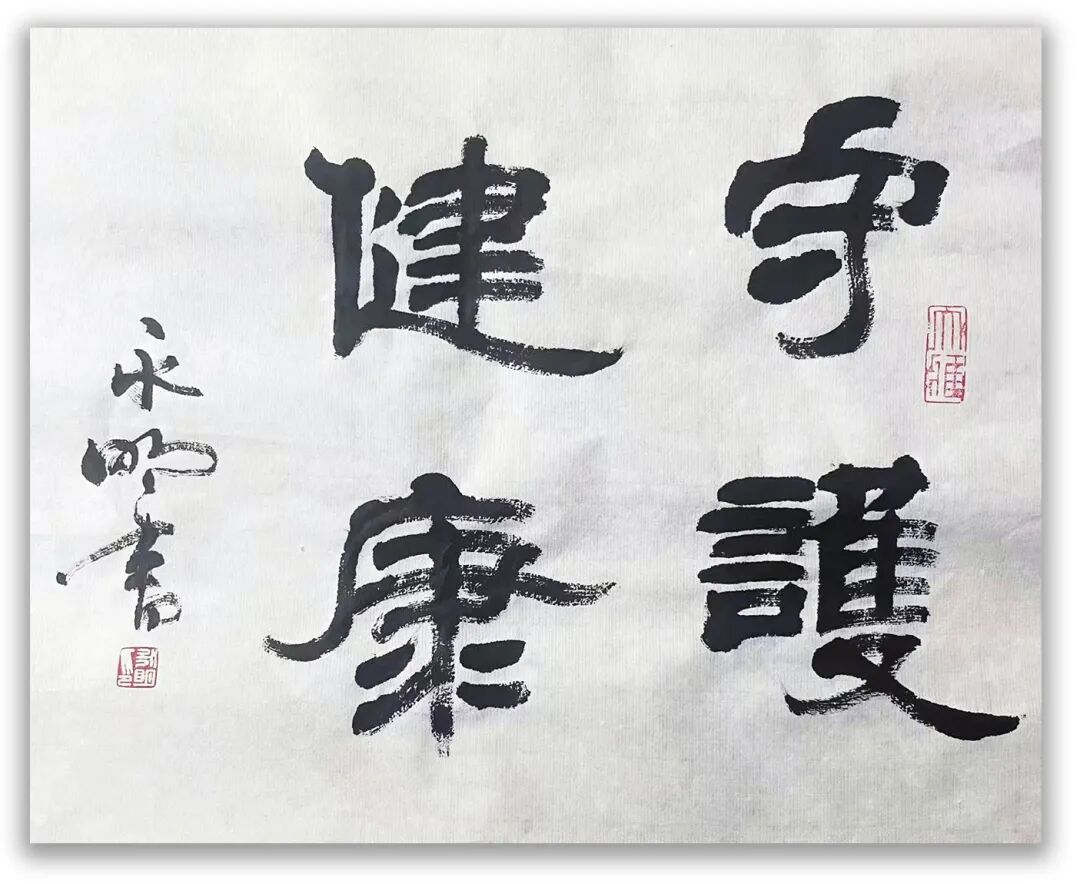 守護
健康
永明書